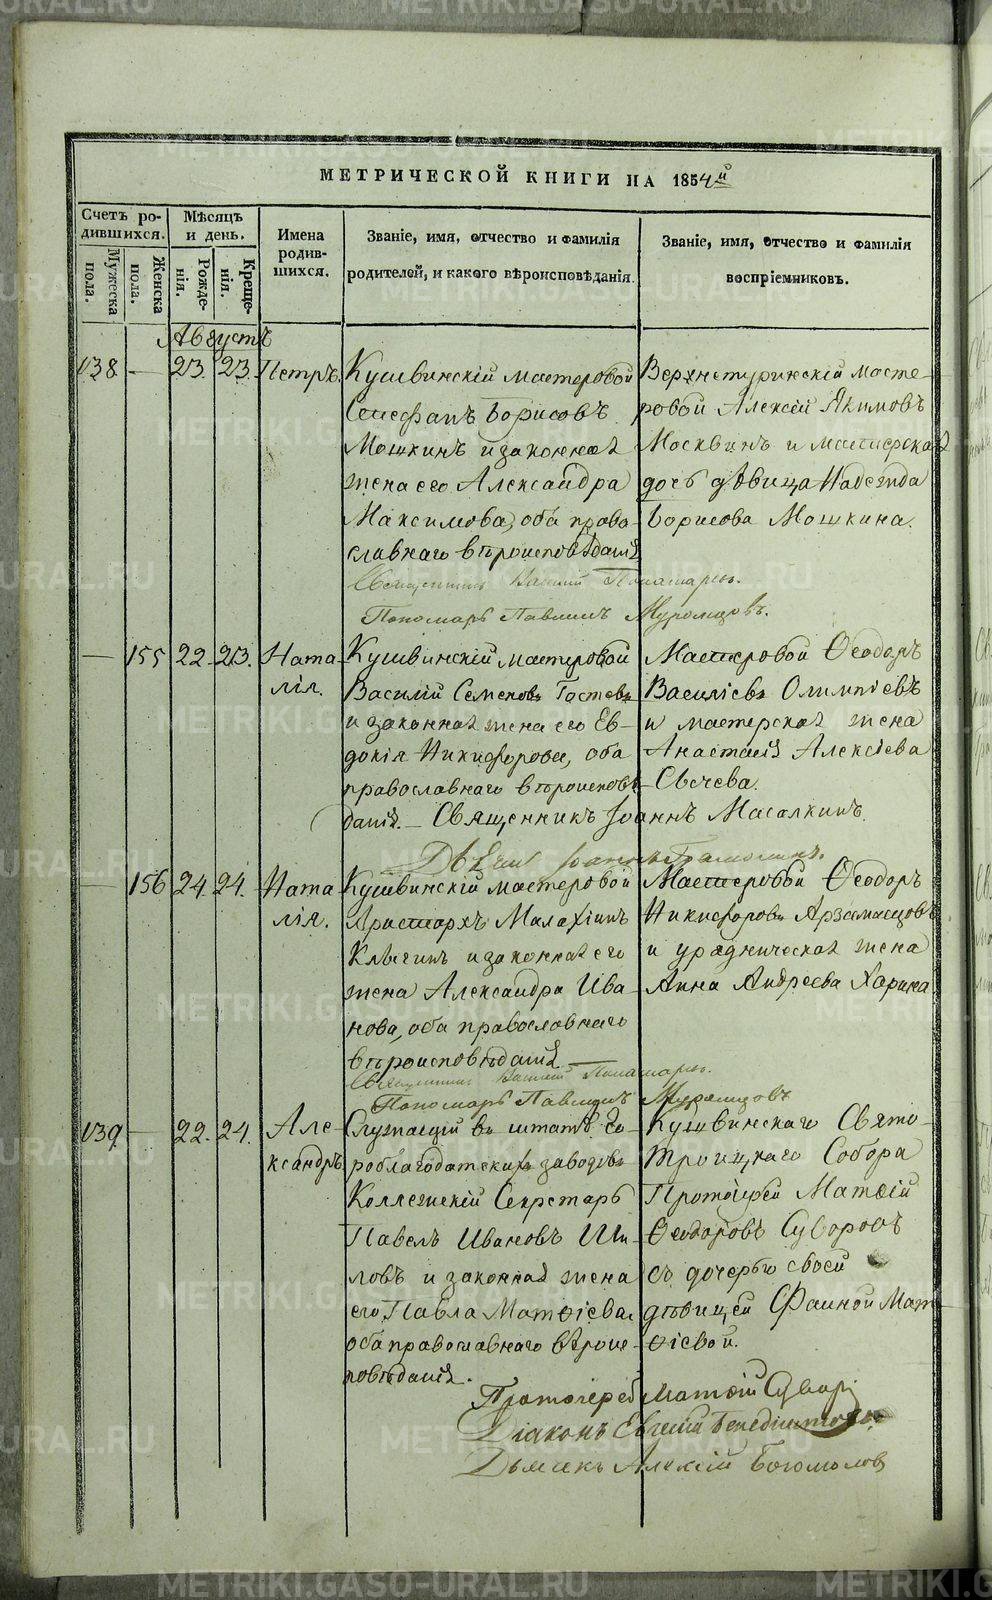 МЕТРИЧЕСКОЙ КНИГИ НА 1854й
Счетъ родившихся.
Мужеска пола.
Женска пола.
Мѣсяцъ и день.
Рожденія.
Крещенія.
Имена родившихся.
Званіе, имя, отчество и фамилія
родителей, и какого вѣроисповѣданія.
Званіе, имя, отчество и фамилія
воспріемниковъ.
Августъ
138 — 23. 23. Петръ.
Кушвинскій мастеровой
Стефанъ Борисовъ
Мошкинъ и законная
жена его Александра
Максимова, оба право-
славнаго вѣроисповѣданія
Верхнетуринскій масте-
ровой Алексій Якимовъ
Москвинъ и мастерская
дочь дѣвица Надежда
Борисова Мошкина.
Священникъ Василій
Пономарь Павлинъ Муромцовъ.
— 155 22. 23. Ната-
лія.
Кушвинскій мастеровой
Василій Семеновъ Гостевъ
и законная жена его Ев-
докія Никифорова, оба
православнаго вѣроисповѣ-
данія. — Священникъ Іоаннъ Масалкинъ.
Мастеровой Ѳеодоръ
Василіевъ Олимпіевъ
и мастерская жена
Анастасія Алексіева
Свѣчева.
Іоаннъ
— 156 24. 24. Ната-
лія.
Кушвинскій мастеровой
Аристархъ Малахіинъ
и законная его
жена Александра Ива-
нова, оба православнаго
вѣроисповѣданія
Мастеровой Ѳеодоръ
Никифоровъ Арзамасцовъ
и урядническая жена
Анна Андреева Харина.
Священникъ Василій
Пономарь Павлинъ Муромцовъ
139 — 22. 24. Але-
ксандръ
Служащій въ штатѣ Го-
роблагодатскихъ заводовъ
Коллежскій Секретарь
Павелъ Ивановъ Ши-
ловъ и законная жена
его Павла Матѳіева,
оба православнаго вѣроис-
повѣданія.
Кушвинскаго Свято-
Троицкаго Собора
Протоіерей Матѳій
Ѳеодоровъ Суворовъ
съ дочерью своей
дѣвицей Фаиной Мат-
ѳіевой.
Протоіерей Матѳій Суворовъ
Діаконъ Евгеній
Дьячекъ Алексій Богомоловъ